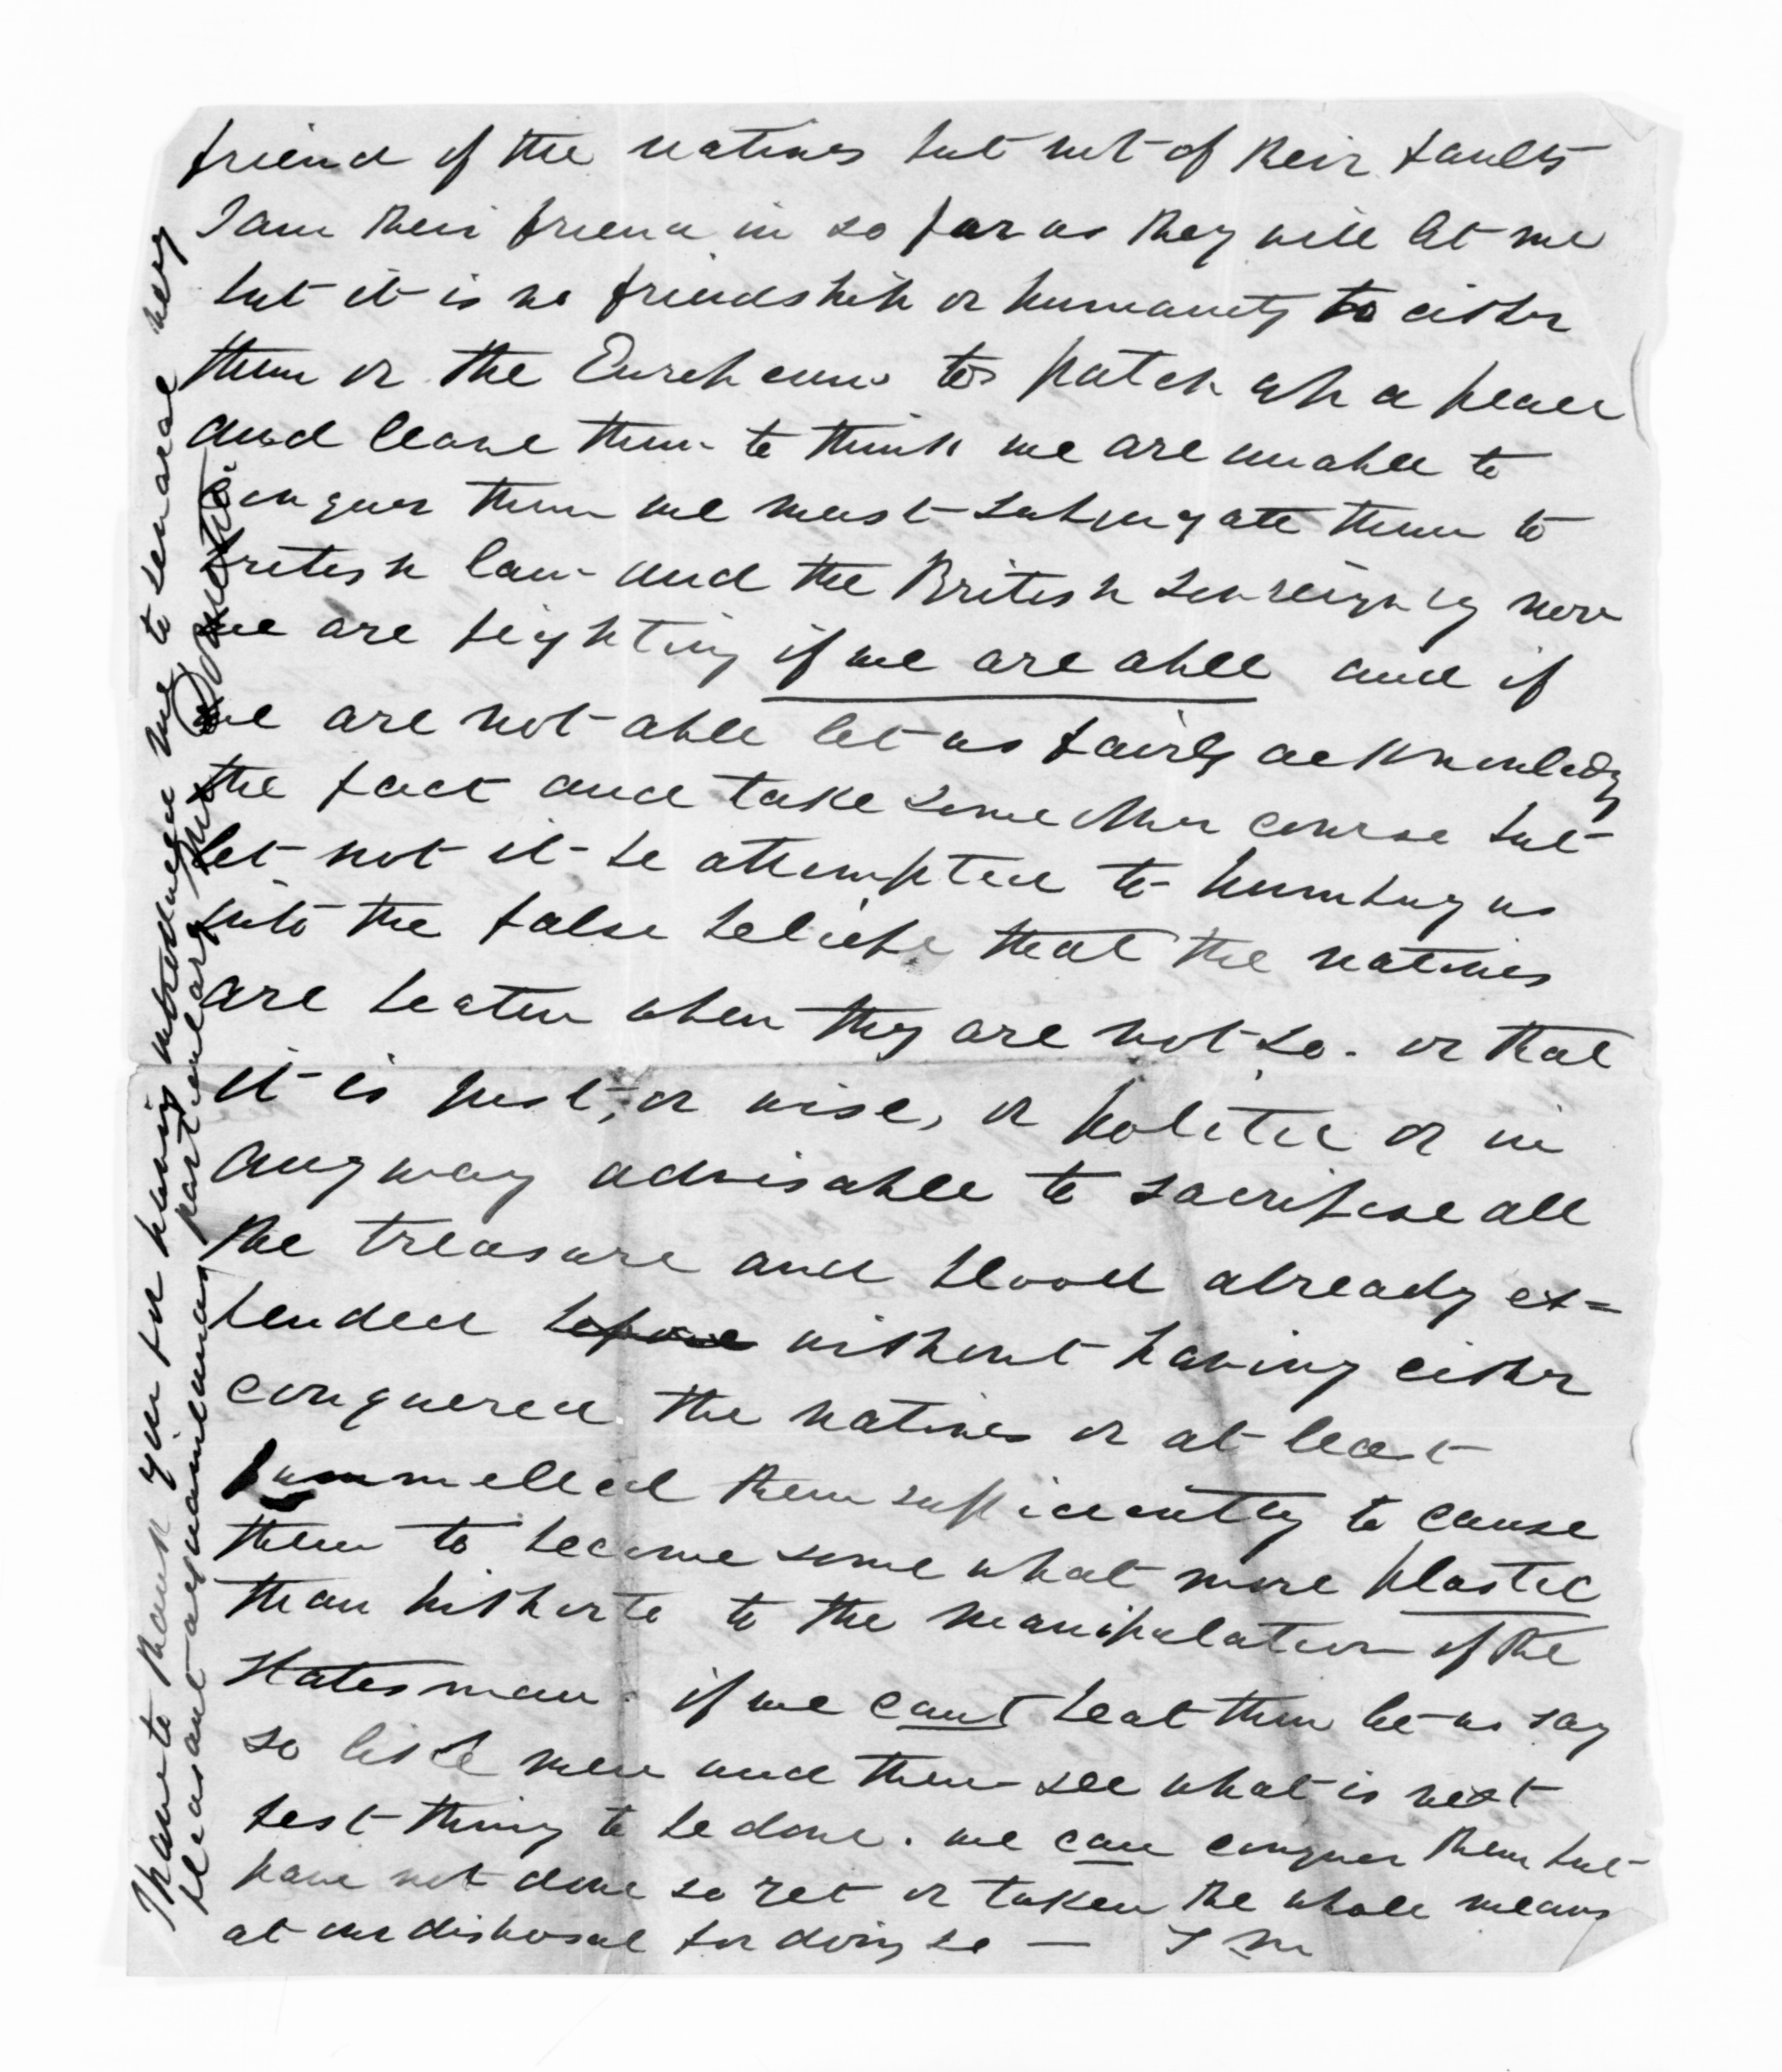 friend of the natives but not of their faults
I am their friend in so far as they will let me
but it is no friendship or humanity to either
them or the Europeans to patch up a peace
and leave them to think we are unable to
conquer them we must subjugate them to
British law and the British sovreignty now
we are fighting if we are able and if
we are not able let us fairly acknowledge
the fact and take some other course but
let not it be attempted to humbug us
into the false beliefe that the natives
are beaten when they are not so. or that
it is just, or wise, or politic or in
any way advisable to sacrifise all
the treasure and blood already ex=
pended before without having either
conquered the natives or at least
pummelled them sufficiently to cause
them to become some what more plastic
than hitherto to the manipulation of the
Statesman. if we cant beat them let us say
so like men and then see what is next
best thing to be done. we can conquer them but
have not done so yet or taken the whole means
at our disposal for doing so —
I have to thank you for having introduced me to several very
pleasant acquaintances particularly